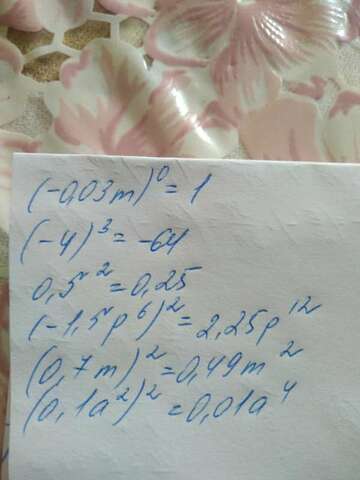 (-0,03m)⁰ = 1
(-4)³ = -64
0,5² = 0,25
(-1,5p⁶)² = 2,25p¹²
(0,7m)² = 0,49m²
(0,1a²)² = 0,01a⁴